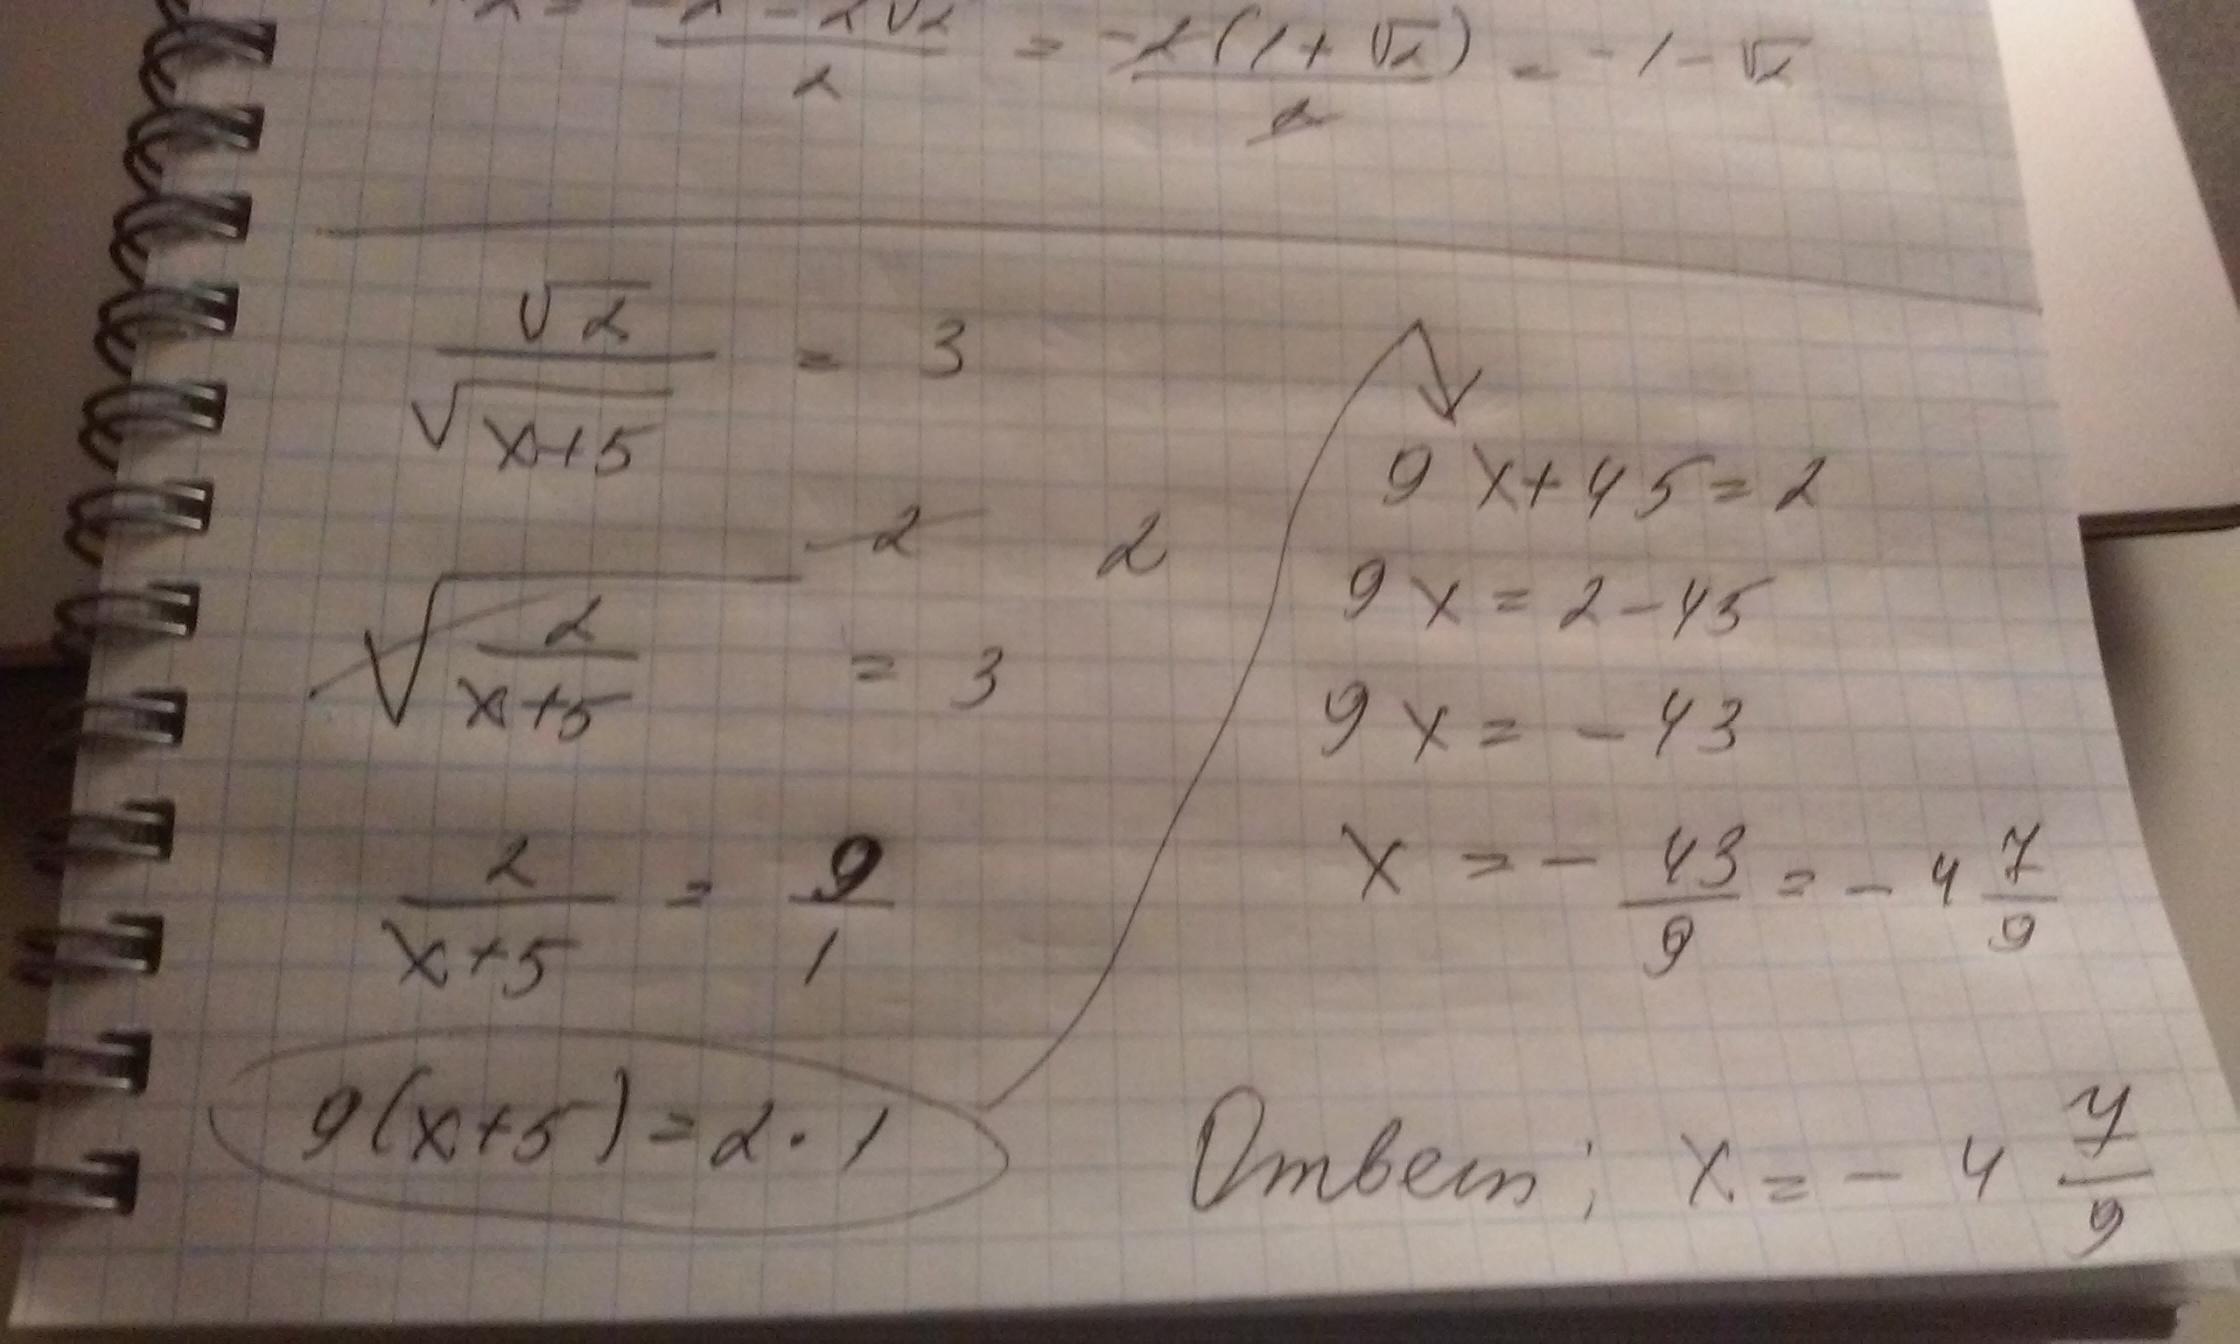 2 = -2 - 2√2 / 2 = -2(1+√2) / 2 = -1-√2
√2 / √x+5 = 3
√(2 / x+5)² = 3²
2 / x+5 = 9 / 1
9(x+5)=2·1
9x+45=2
9x=2-45
9x=-43
x=-43/9=-4 7/9
Ответ; x=-4 7/9